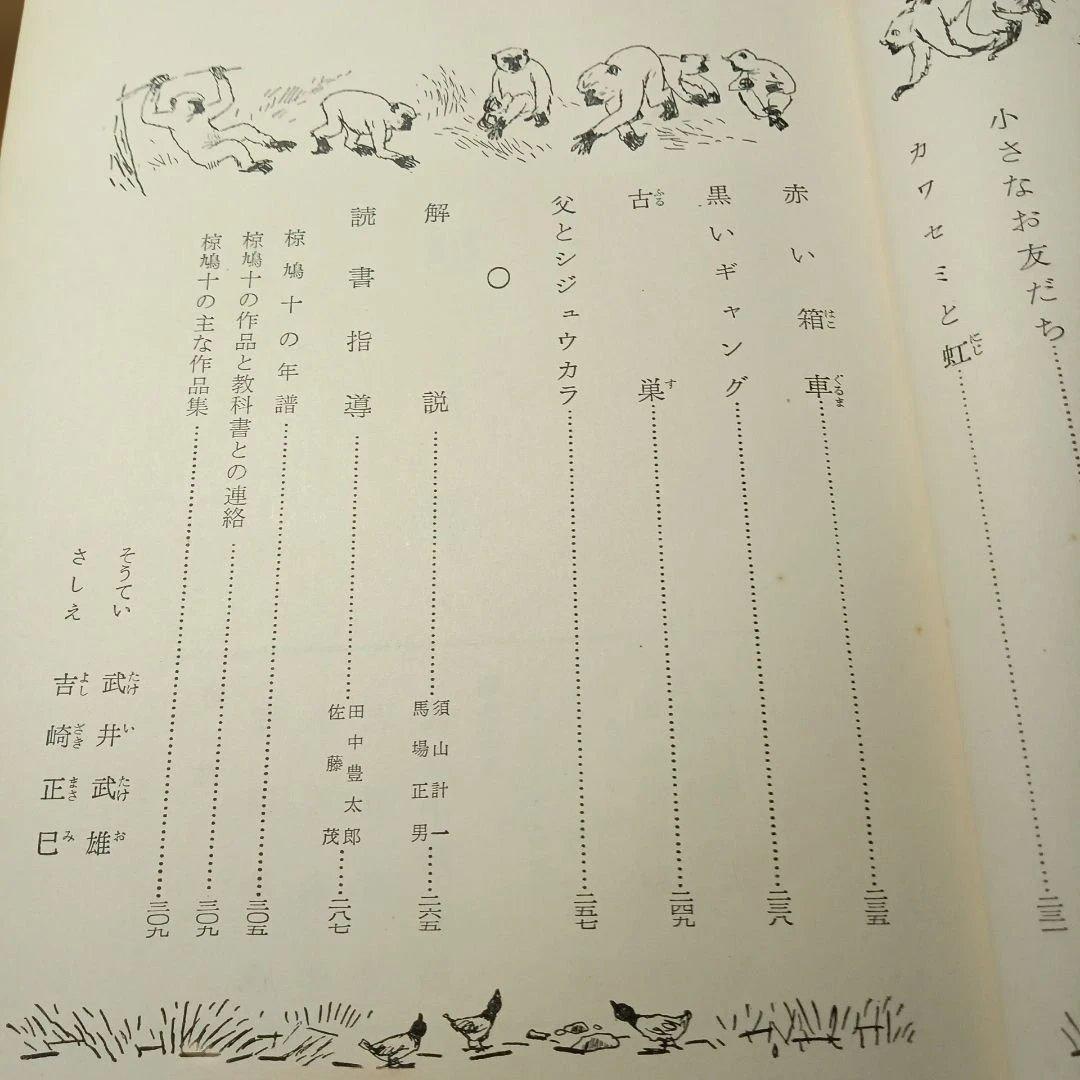 小さなお友だち……
カワセミと虹……二三一
にじ
赤い箱車……二三五
はこぐるま
黒いギャング……二三八
古巣……二四九
ふるす
父とシジュウカラ……二五七
○
解説……須山計一
馬場正男……二六五
読書指導……田中豊太郎
佐藤茂……二八七
椋鳩十の年譜……三〇五
椋鳩十の作品と教科書との連絡……三〇九
椋鳩十の主な作品集……三〇九
そうてい 武井武雄
たけいたけお
さしえ 吉崎正巳
よしざきまさみ